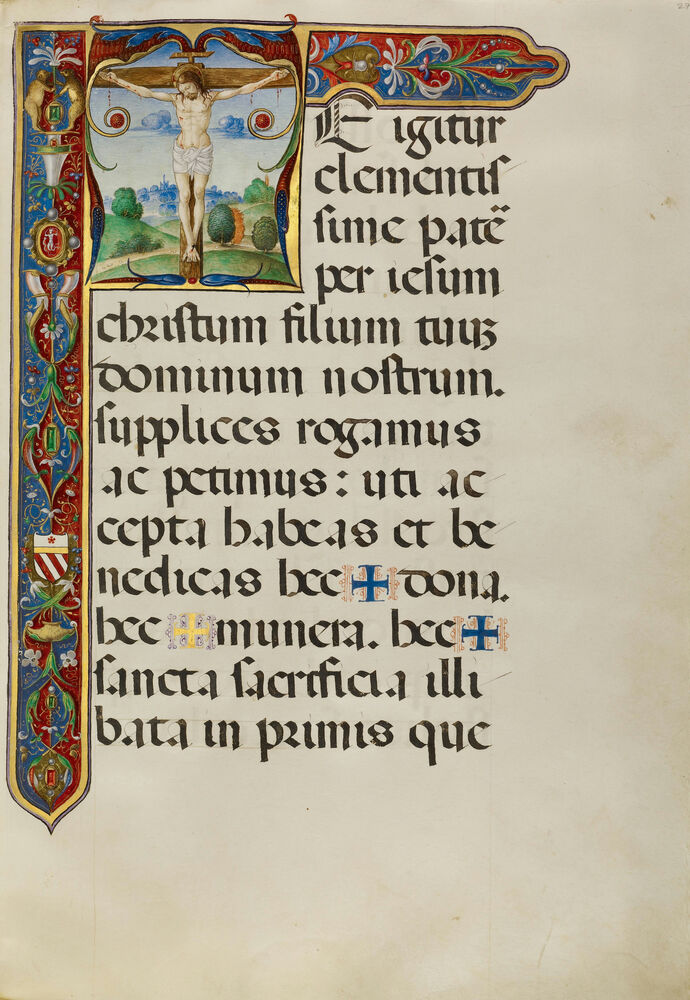 TE igitur
clementis
sime patē
per iesum
christum filium tuuz
dominum nostrum.
supplices rogamus
ac petimus: uti ac
cepta habeas et be
nedicas hec ✚ dona.
hec ✚ munera. hec ✚
sancta sacrificia illi
bata in primis que